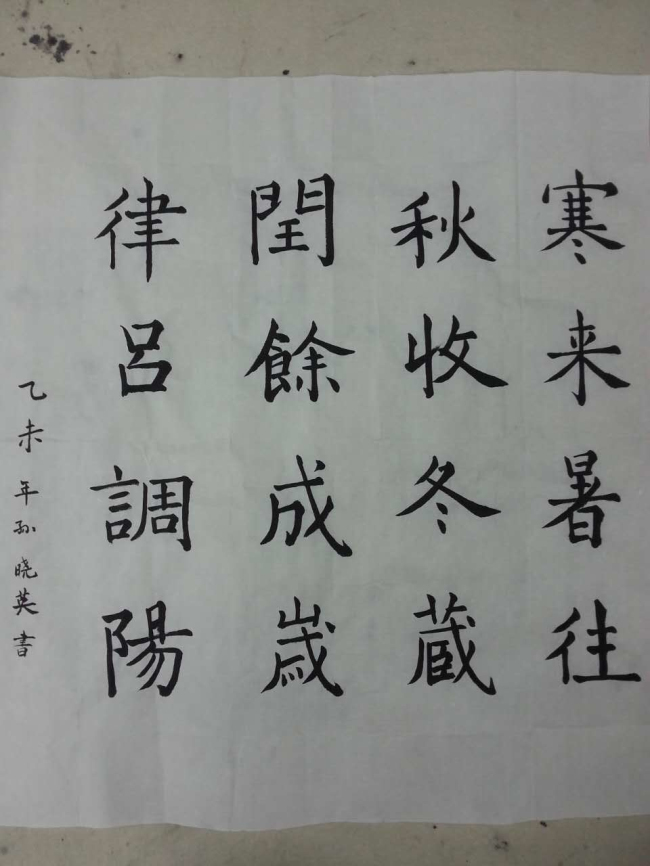 寒来暑往
秋收冬蔵
閏餘成歳
律呂調陽
乙未年孙晓英書